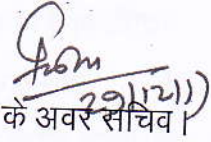 29/12/11
के अवर सचिव।